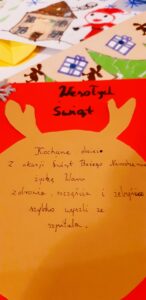 Wesołych
Świąt
Kochane dzieci
Z okazji Świąt Bożego Narodzenia
życzę Wam
zdrowia, szczęścia i żebyście
szybko wyszli ze
szpitala.